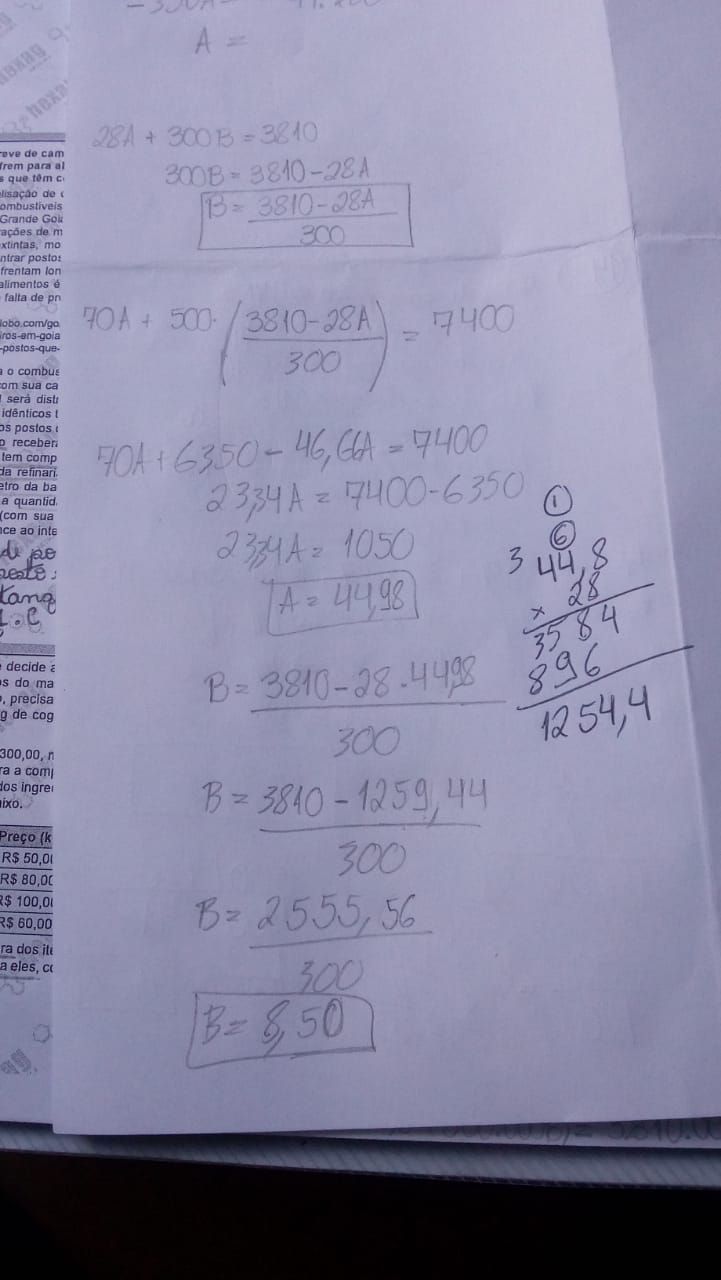 A =
28A + 300B = 3810
300B = 3810 - 28A
B = 3810 - 28A
300
70A + 500 · (3810 - 28A) = 7400
300
70A + 6350 - 46,66A = 7400
23,34A = 7400 - 6350
23,34A = 1050
A = 44,98
B = 3810 - 28 . 44,98
300
B = 3810 - 1259,44
300
B = 2555,56
300
B = 8,50
1
6
3
44,8
x 28
3584
896
1254,4
hexag
eve de cam
frem para al
s que têm c
lisação de
ombustíveis
Grande Goi
ações de m
xtintas, mo
ntrar postos
frentam lon
alimentos é
falta de pn
lobo.com/go
iros-em-goia
-postos-que-
a o combus
om sua ca
será distr
idênticos t
os postos
o receber
tem comp
da refinari
etro da ba
a quantid
(com sua
nce ao inte
de po
posto:
tanq
decide a
s do ma
, precisa
g de cog
300,00, n
ra a comp
dos ingre
ixo.
Preço (k
R$ 50,0
R$ 80,00
R$ 100,0
R$ 60,00
ra dos ite
a eles, c